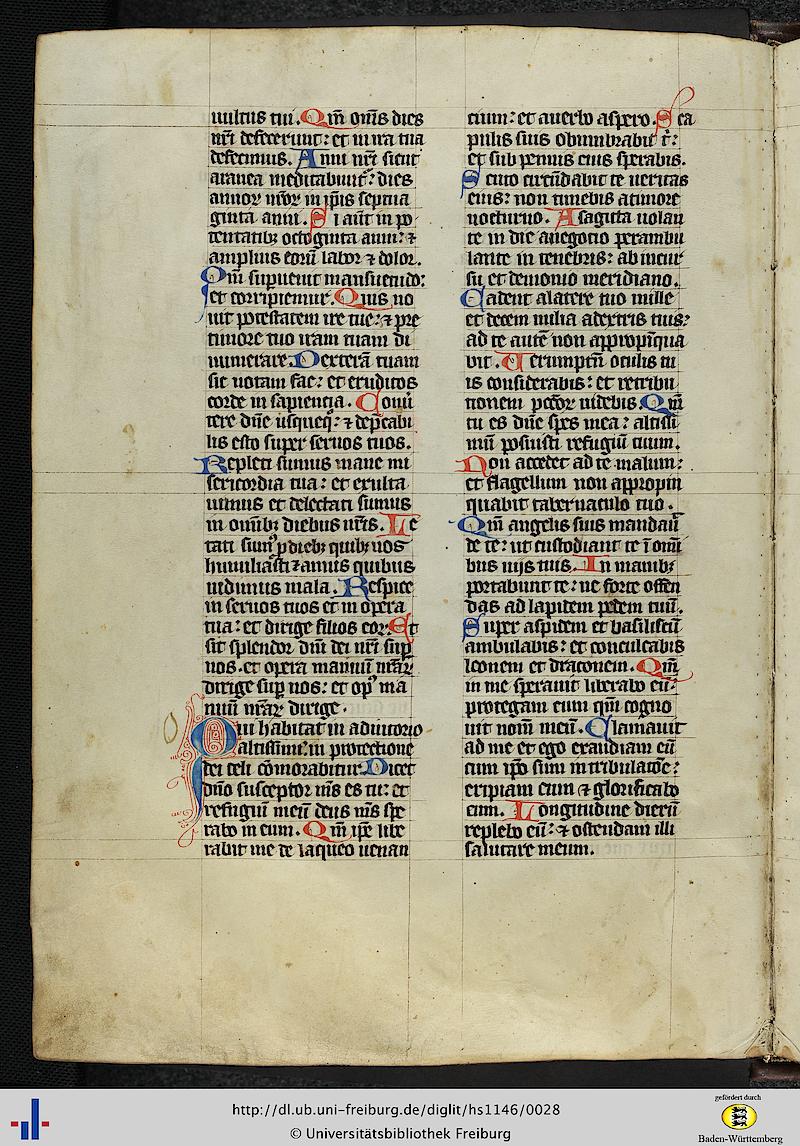 uultus tui. Qm̄ om̄s dies
nr̄i defecerunt: et in ira tua
defecimus. Anni nr̄i sicut
aranea meditabunt᷑: dies
annoꝝ nr̄oꝝ in ip̄is septua
ginta anni. Si aūt in po
tentatibꝫ octoginta anni: ⁊
amplius eorū labor ⁊ dolor.
Qm̄ supuenit mansuetudo:
et corripiemur. Quis no
uit potestatem ire tue: ⁊ pre
timore tuo iram tuam di
numerare. Dexterā tuam
sic notam fac: et eruditos
corde in sapiencia. Conū
tere dn̄e usqueqū: ⁊ dep̄cabi
lis esto super seruos tuos.
Repleti sumus mane mi
sericordia tua: et exulta
uimus et delectati sumus
in omībꝫ diebus nr̄is. Le
tati sumꝰ p diebꝫ quibꝫ nos
humiliasti: ⁊ annis quibus
uidimus mala. Respice
in seruos tuos et in opera
tua: et dirige filios eoꝝ. Et
sit splendor dn̄i dei nr̄i sup̄
nos. et opera manuū nr̄aꝝ
dirige sup̄ nos: et opꝰ ma
nuū nr̄aꝝ dirige.
Qui habitat in adiutorio
altissimi: in protectione
dei celi cōmorabitur. Dicet
dn̄o susceptor m̄s es tu: et
refugiū meū deus m̄s spe
rabo in eum. Qm̄ ip̄e libe
rabit me de laqueo uenan
cium: et auerbo aspero. Sca
pulis suis obumbrabit t̄:
et sub pennis eius sperabis.
Scuto circūdabit te ueritas
eius: non timebis atimore
nocturno. Asagitta uolan
te in die anegocio perambu
lante in tenebris: ab incur
su et demonio meridiano.
Cadent alatere tuo mille
et decem milia adextris tuis:
ad te autē non appropīqua
bit. Uerumptn̄ oculis tu
is considerabis: et retribu
tionem pcc̄oꝝ uidebis. Qm̄
tu es dn̄e spes mea: altissi
mū posuisti refugiū tuum.
Non accedet ad te malum:
et flagellum non appropin
quabit tabernaculo tuo.
Qm̄ angelis suis mandauͥ
de te: ut custodiant te ī omī
bus uijs tuis. In manibꝫ
portabunt te: ne forte offen
das ad lapidem pedem tuū.
Super aspidem et basiliscū
ambulabis: et conculcabis
leonem et draconem. Qm̄
in me sperauit liberabo eū:
protegam eum qm̄ cogno
uit nom̄ meū. Clamauit
ad me et ego exaudiam eū
cum ip̄o sum in tribulatōe:
eripiam eum ⁊ glorificabo
eum. Longitudine dierū
replebo eū: ⁊ ostendam illi
salutare meum.
http://dl.ub.uni-freiburg.de/diglit/hs1146/0028
© Universitätsbibliothek Freiburg
gefördert durch
Baden-Württemberg